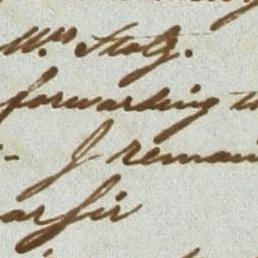 Mrs Stolz.
forwarding th
- I remain
ar Sir